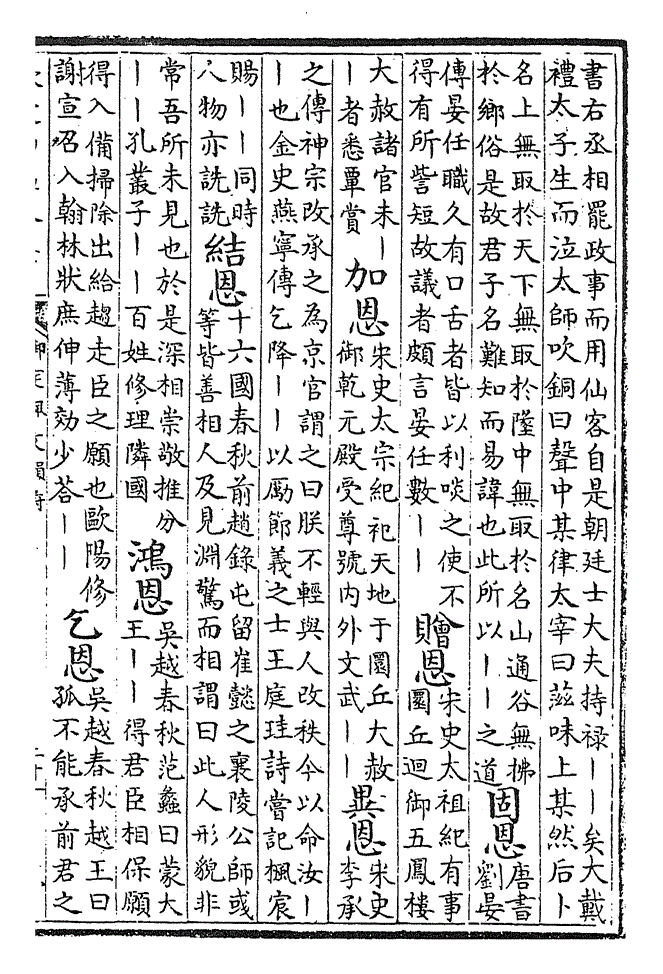 書右丞相罷政事而用仙客自是朝廷士大夫持禄丨丨矣大戴
禮太子生而泣太師吹銅曰聲中某律太宰曰滋味上某然后卜
名上無取於天下無取於墜中無取於名山通谷無拂
於鄉俗是故君子名難知而易諱也此所以丨丨之道
固恩
唐書
劉晏
傳晏任職久有口舌者皆以利啖之使不
得有所訾短故議者頗言晏任數丨丨
贈恩
宋史太祖紀有事
圜丘迴御五鳳樓
大赦諸官未丨
丨者悉覃賞
加恩
宋史太宗紀祀天地于圜丘大赦
御乾元殿受尊號内外文武丨丨
異恩
宋史
李承
之傳神宗改承之為京官謂之曰朕不輕與人改秩今以命汝丨
丨也金史燕寧傳乞降丨丨以勵節義之士王庭珪詩嘗記楓宸
賜丨丨同時
人物亦詵詵
結恩
十六國春秋前趙錄屯留崔懿之襄陵公師或
等皆善相人及見淵驚而相謂曰此人形貌非
常吾所未見也於是深相崇敬推分
丨丨孔叢子丨丨百姓修理隣國
鴻恩
吳越春秋范蠡曰蒙大
王丨丨得君臣相保願
得入備掃除出給趨走臣之願也歐陽修
謝宣召入翰林狀庶伸薄効少荅丨丨
乞恩
吳越春秋越王曰
孤不能承前君之